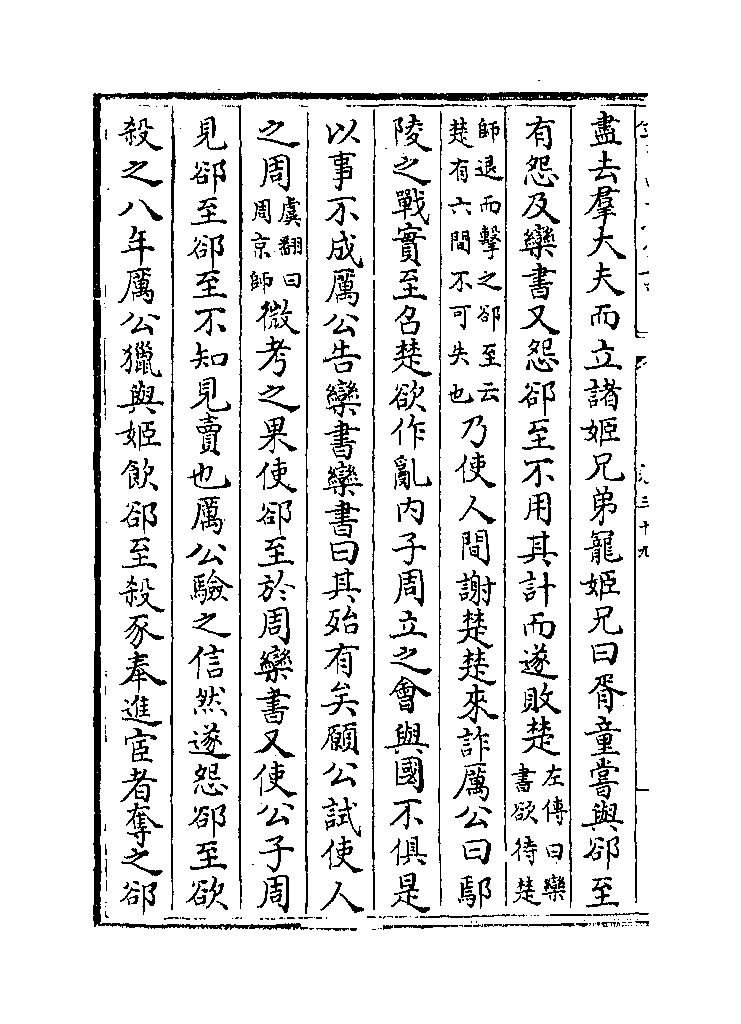 盡去羣大夫而立諸姬兄弟寵姬兄曰胥童嘗與郤至
有怨及欒書又怨郤至不用其計而遂敗楚左傳曰欒書欲待楚
師退而擊之郤至云楚有六間不可失也乃使人間謝楚楚來詐厲公曰鄢
陵之戰實至召楚欲作亂内子周立之會與國不俱是
以事不成厲公告欒書欒書曰其殆有矣願公試使人
之周虞翻曰周京師微考之果使郤至於周欒書又使公子周
見郤至郤至不知見賣也厲公驗之信然遂怨郤至欲
殺之八年厲公獵與姬飲郤至殺豕奉進宦者奪之郤
卷三十九